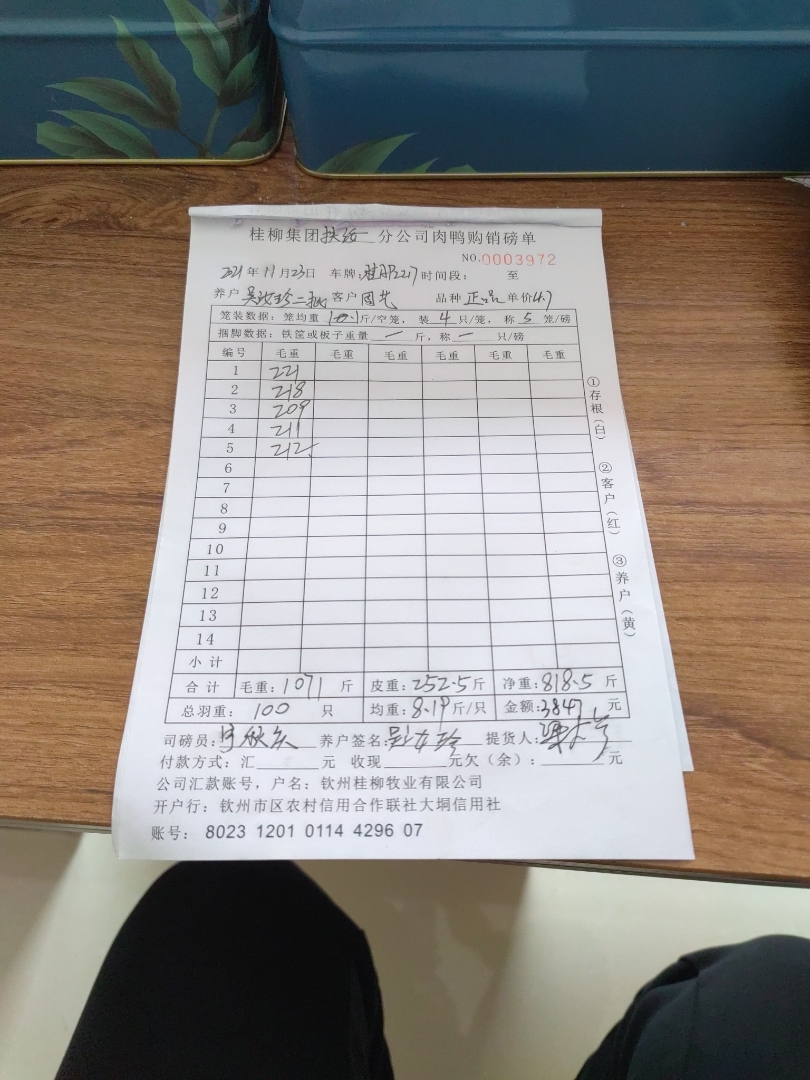 桂柳集团扶绥分公司肉鸭购销磅单
NO.0003972
2021年11月23日 车牌: 桂 2217 时间段: 至
养户 吴 珍二 客户 品种 正品 单价4.7
笼装数据: 笼均重 10.1斤/空笼, 装 4 只/笼, 称 5 笼/磅
捆脚数据: 铁筐或板子重量 — 斤, 称 — 只/磅
编号 毛重 毛重 毛重 毛重 毛重 毛重
1 221
2 218
3 209
4 211
5 212
6
7
8
9
10
11
12
13
14
小计
合计 毛重: 1071 斤 皮重: 252.5斤 净重: 818.5 斤
总羽重: 100 只 均重: 8.19斤/只 金额: 3847 元
司磅员: 养户签名: 提货人:
付款方式: 汇 元 收现 元欠(余): 元
公司汇款账号, 户名: 钦州桂柳牧业有限公司
开户行: 钦州市区农村信用合作联社大垌信用社
账号: 8023 1201 0114 4296 07
①存根(白)
②客户(红)
③养户(黄)